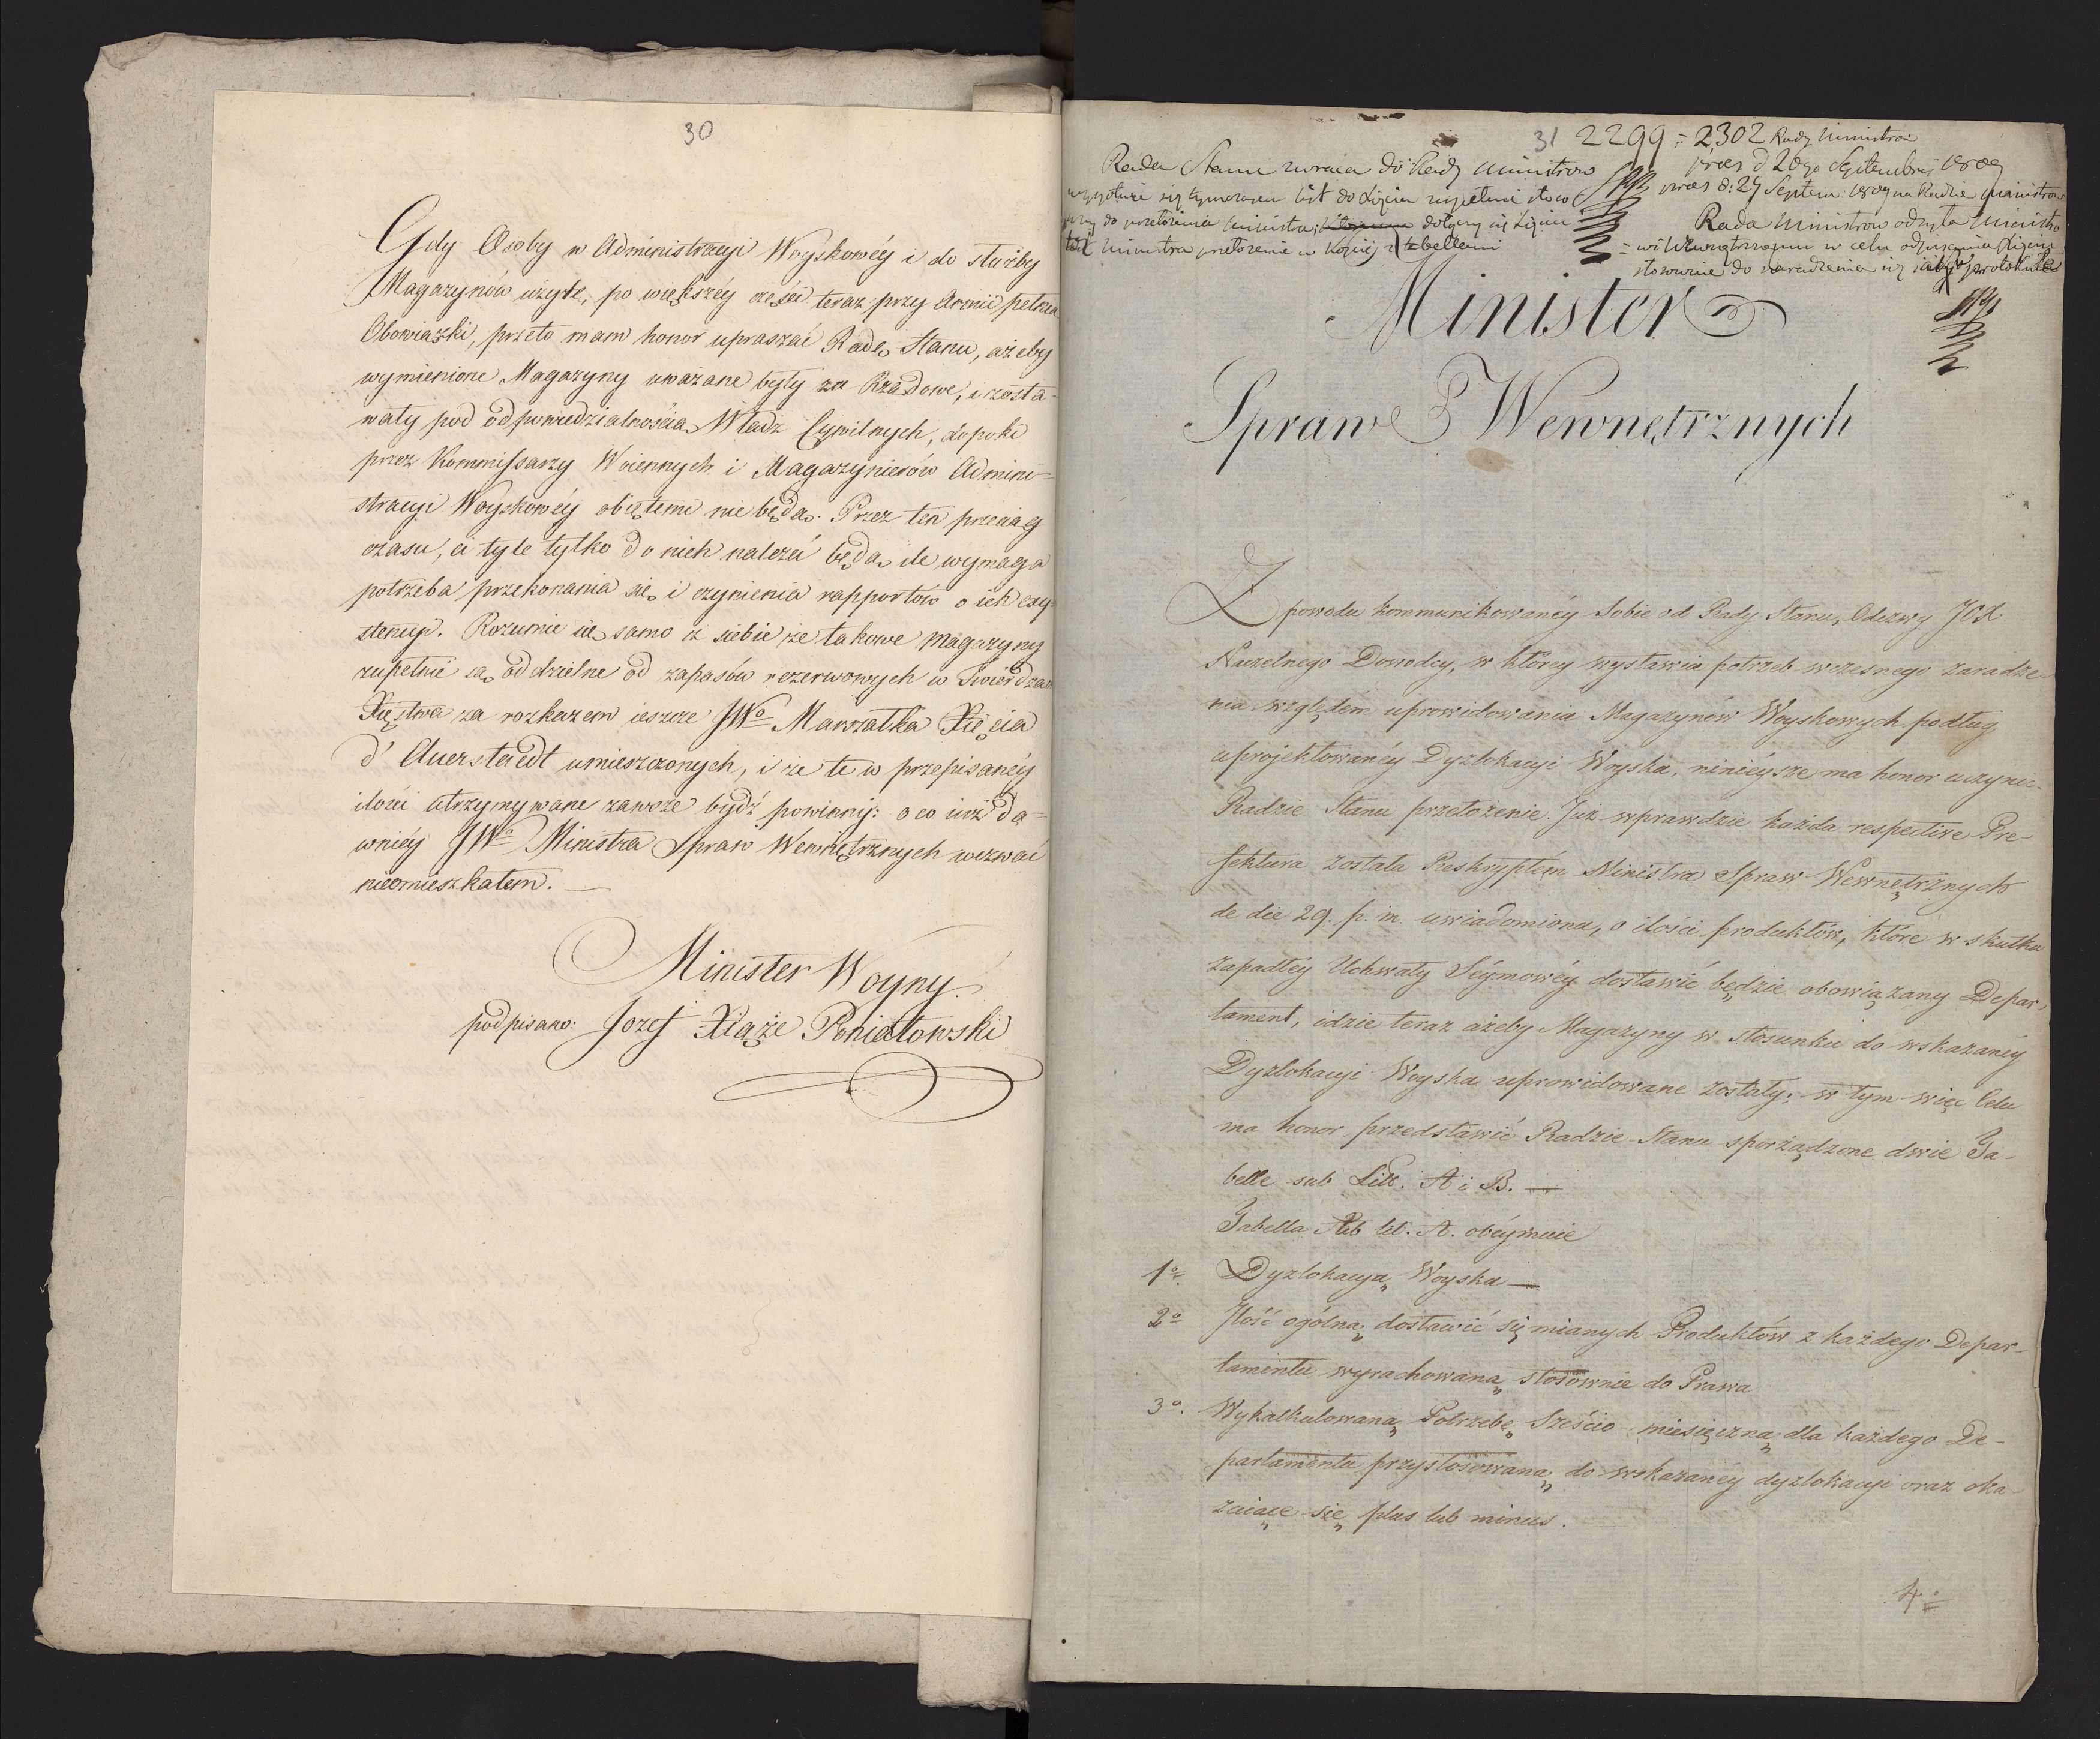 30
Gdy Osoby w Administracyi Woyskowéy i do służby
Magazynów użyte, po większéy części teraz przy Armii pełnią
Obowiązki, przeto mam honor upraszać Radę Stanu, ażeby
wymienione Magazyny uważane były za Rządowe, i zosta-
wały pod odpowiedzialnością Władz Cywilnych, dopoki
przez Kommissarzy Woiennych i Magazynierów Admini=
stracyi Woyskowéy obiętemi nie będą. Przez ten przeciąg
czasu, ci tyle tylko do nich należeć będą, ile wymaga
potrzeba przekonania się, i czynienia rapportów o ich exy-
stencyi. Rozumie się samo z siebie że takowe Magazyny
zupełnie są oddzielne od zapasów rezerwowych w Twierdzach
Xięstwa za rozkazem ieszcze JWo Marszałka Xięcia
d'Auerstaedt umieszczonych, i że te w przepisanéy
ilości utrzymywane zawsze bydź powinny: o co iuż da=
wniéy JWo Ministra Spraw Wewnętrznych wezwać
nieomieszkałem. —
Minister Woyny.
podpisano: Jozef Xiąże Poniatowski
31 2299 ÷ 2302 Rady Ministrów
præs d 28go Septembris 1809
præs d: 29 Septem: 1809 na Radzie Ministrów
Rada Stanu zwraca do Rady Ministrow
się tymczasem list do Xięcia zupełnie stoso
do przełożenia Ministra dołączy się Xięciu
Ministra przełożenie w Kopii z tabellami
Rada Ministrów odsyła Ministro
= wi Wewnętrznemu w celu odpisania Xięciu
stosownie do naradzenia się protokułu
Minister
Spraw Wewnętrznych
Z powodu kommunikowanéy Sobie od Rady Stanu, Odezwy JOX
Naczelnego Dowodcy, w którey wystawia potrzeb wczesnego zaradze-
nia względem uprowidowania Magazynów Woyskowych podług
uprojektowanéy Dyzlokacyi Woyska, ninieysze ma honor uczynić
Radzie Stanu przełożenie. Już wprawdzie każda respective Pre-
fektura została Reskryptem Ministra Spraw Wewnętrznych
de die 29. p. m. uwiadomiona, o ilości produktów, które w skutku
zapadłéy Uchwały Séymowéy dostawić będzie obowiązany Depar-
tament, idzie teraz ażeby Magazyny w stosunku do wskazanéy
Dyzlokacyi Woyska uprowidowane zostały; w tym więc Celu
ma honor przedstawić Radzie Stanu sporządzone dwie Ta-
belle sub Litt. A i B. —
Tabella sub lit. A. obéymuie
1o. Dyzlokacyą Woyska —
2o Jlość ogólną dostawić się mianych Produktów z każdego Depar-
tamentu wyrachowaną stosownie do Prawa
3o. Wykalkulowaną Potrzebę Sześcio miesięczną dla każdego De-
partamentu przystosowaną do wskazanéy dyzlokacyi oraz oka-
zuiące się plus lub minus.
4o